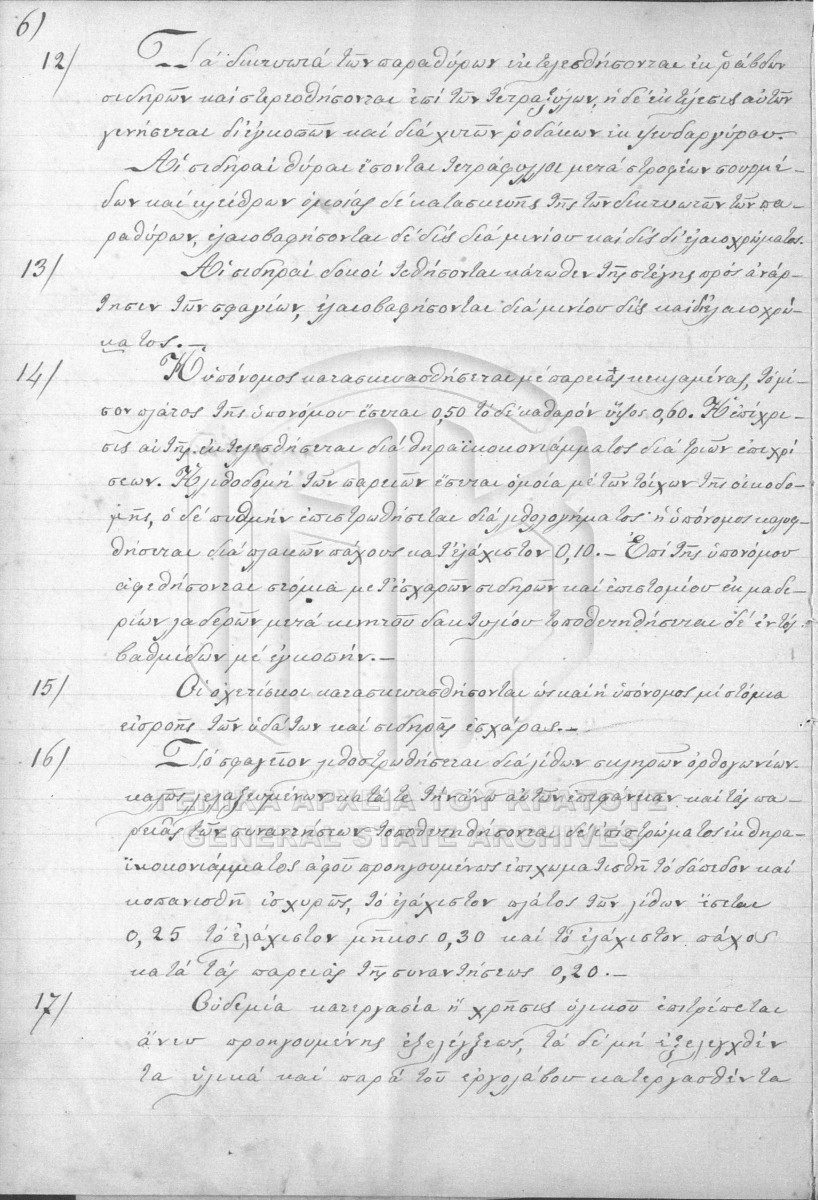 6)
12) Τά δικτυωτά τῶν παραθύρων ἐκτελεσθήσονται ἐκ ῥάβδων
σιδηρῶν καί στερεοθήσονται ἐπί τῶν τετραξύλων, ἡ δέ ἐκτέλεσις αὐτῶν
γενήσεται δι' ἐγκοπῶν καί διά χυτῶν ῥοδάκων ἐκ ψευδαργύρου.
Αἱ σιδηραί θύραι ἔσονται τετράφυλλοι μετά στροφέων σουρμέ-
δων καί κλείθρων ὁμοίας δέ κατασκευῆς τῆς τῶν δικτυωτῶν τῶν πα-
ραθύρων, ἐλαιοβαφήσονται δέ δίς διά μινίου καί δίς δι' ἐλαιοχρώματος.
13) Αἱ σιδηραί δοκοί τεθήσονται κάτωθεν τῆς στέγης πρός ἀνάρ-
τησιν τῶν σφαγίων, ἐλαιοβαφήσονται διά μινίου δίς καί δι' ἐλαιοχρώ-
ματος.—
14) Ἡ ὑπόνομος κατασκευασθήσεται μέ παρειάς κεκλαμένας, τό μέ-
σον πλάτος τῆς ὑπονόμου ἔσεται 0,50 τό δέ καθαρόν ὕψος 0,60. Ἡ ἐπίχρι-
σις αὐτῆς ἐκτελεσθήσεται διά θηραϊκοκονιάμματος διά τριῶν ἐπιχρί
σεων. Ἡ λιθοδομή τῶν παρειῶν ἔσεται ὁμοία μέ τῶν τοίχων τῆς οἰκοδο-
μῆς, ὁ δέ πυθμήν ἐπιστρωθήσεται διά λιθολογήματος ἡ ὑπόνομος καλυφ-
θήσεται διά πλακῶν πάχους κατ' ἐλάχιστον 0,10.— Ἐπί τῆς ὑπονόμου
ἀφεθήσονται στόμια μετ' ἐσχαρῶν σιδηρῶν καί ἐπιστομίου ἐκ μαδε-
ρίων λαδερῶν μετά κινητοῦ δακτυλίου τοποθετηθήσεται δέ ἐντός
βαθμίδων μέ ἐγκοπήν.—
15) Οἱ ὀχετίσκοι κατασκευασθήσονται ὡς καί ἡ ὑπόνομος μέ στόμια
εἰσροῆς τῶν ὑδάτων καί σιδηρᾶς ἐσχάρας.—
16) Τό σφαγεῖον λιθοστρωθήσεται διά λίθων σκληρῶν ὀρθογωνίων
καλῶς λελαξευμένων κατά τε τήν ἄνω αὐτῶν ἐπιφάνειαν καί τάς πα-
ρειάς τῶν συναντήσεων τοποθετηθήσονται δέ ἐπί στρώματος ἐκ θηρα-
ϊκοκονιάμματος ἀφοῦ προηγουμένως ἐπιχωματισθῇ τό δάπεδον καί
κοπανισθῇ ἰσχυρῶς, τό ἐλάχιστον πλάτος τῶν λίθων ἔσεται
0,25 τό ἐλάχιστον μῆκος 0,30 καί τό ἐλάχιστον πάχος
κατά τάς παρειάς τῆς συναντήσεως 0,20.—
17) Οὐδεμία κατεργασία ἤ χρῆσις ὑλικοῦ ἐπιτρέπεται
ἄνευ προηγουμένης ἐξελέγξεως, τά δέ μή ἐξελεγχθέν
τα ὑλικά καί παρά τοῦ ἐργολάβου κατεργασθέντα
ΓΕΝΙΚΑ ΑΡΧΕΙΑ ΤΟΥ ΚΡΑΤΟΥΣ
GENERAL STATE ARCHIVES